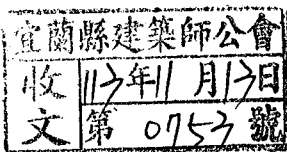 宜蘭縣建築師公會
收文
113年11月13日
第0753號